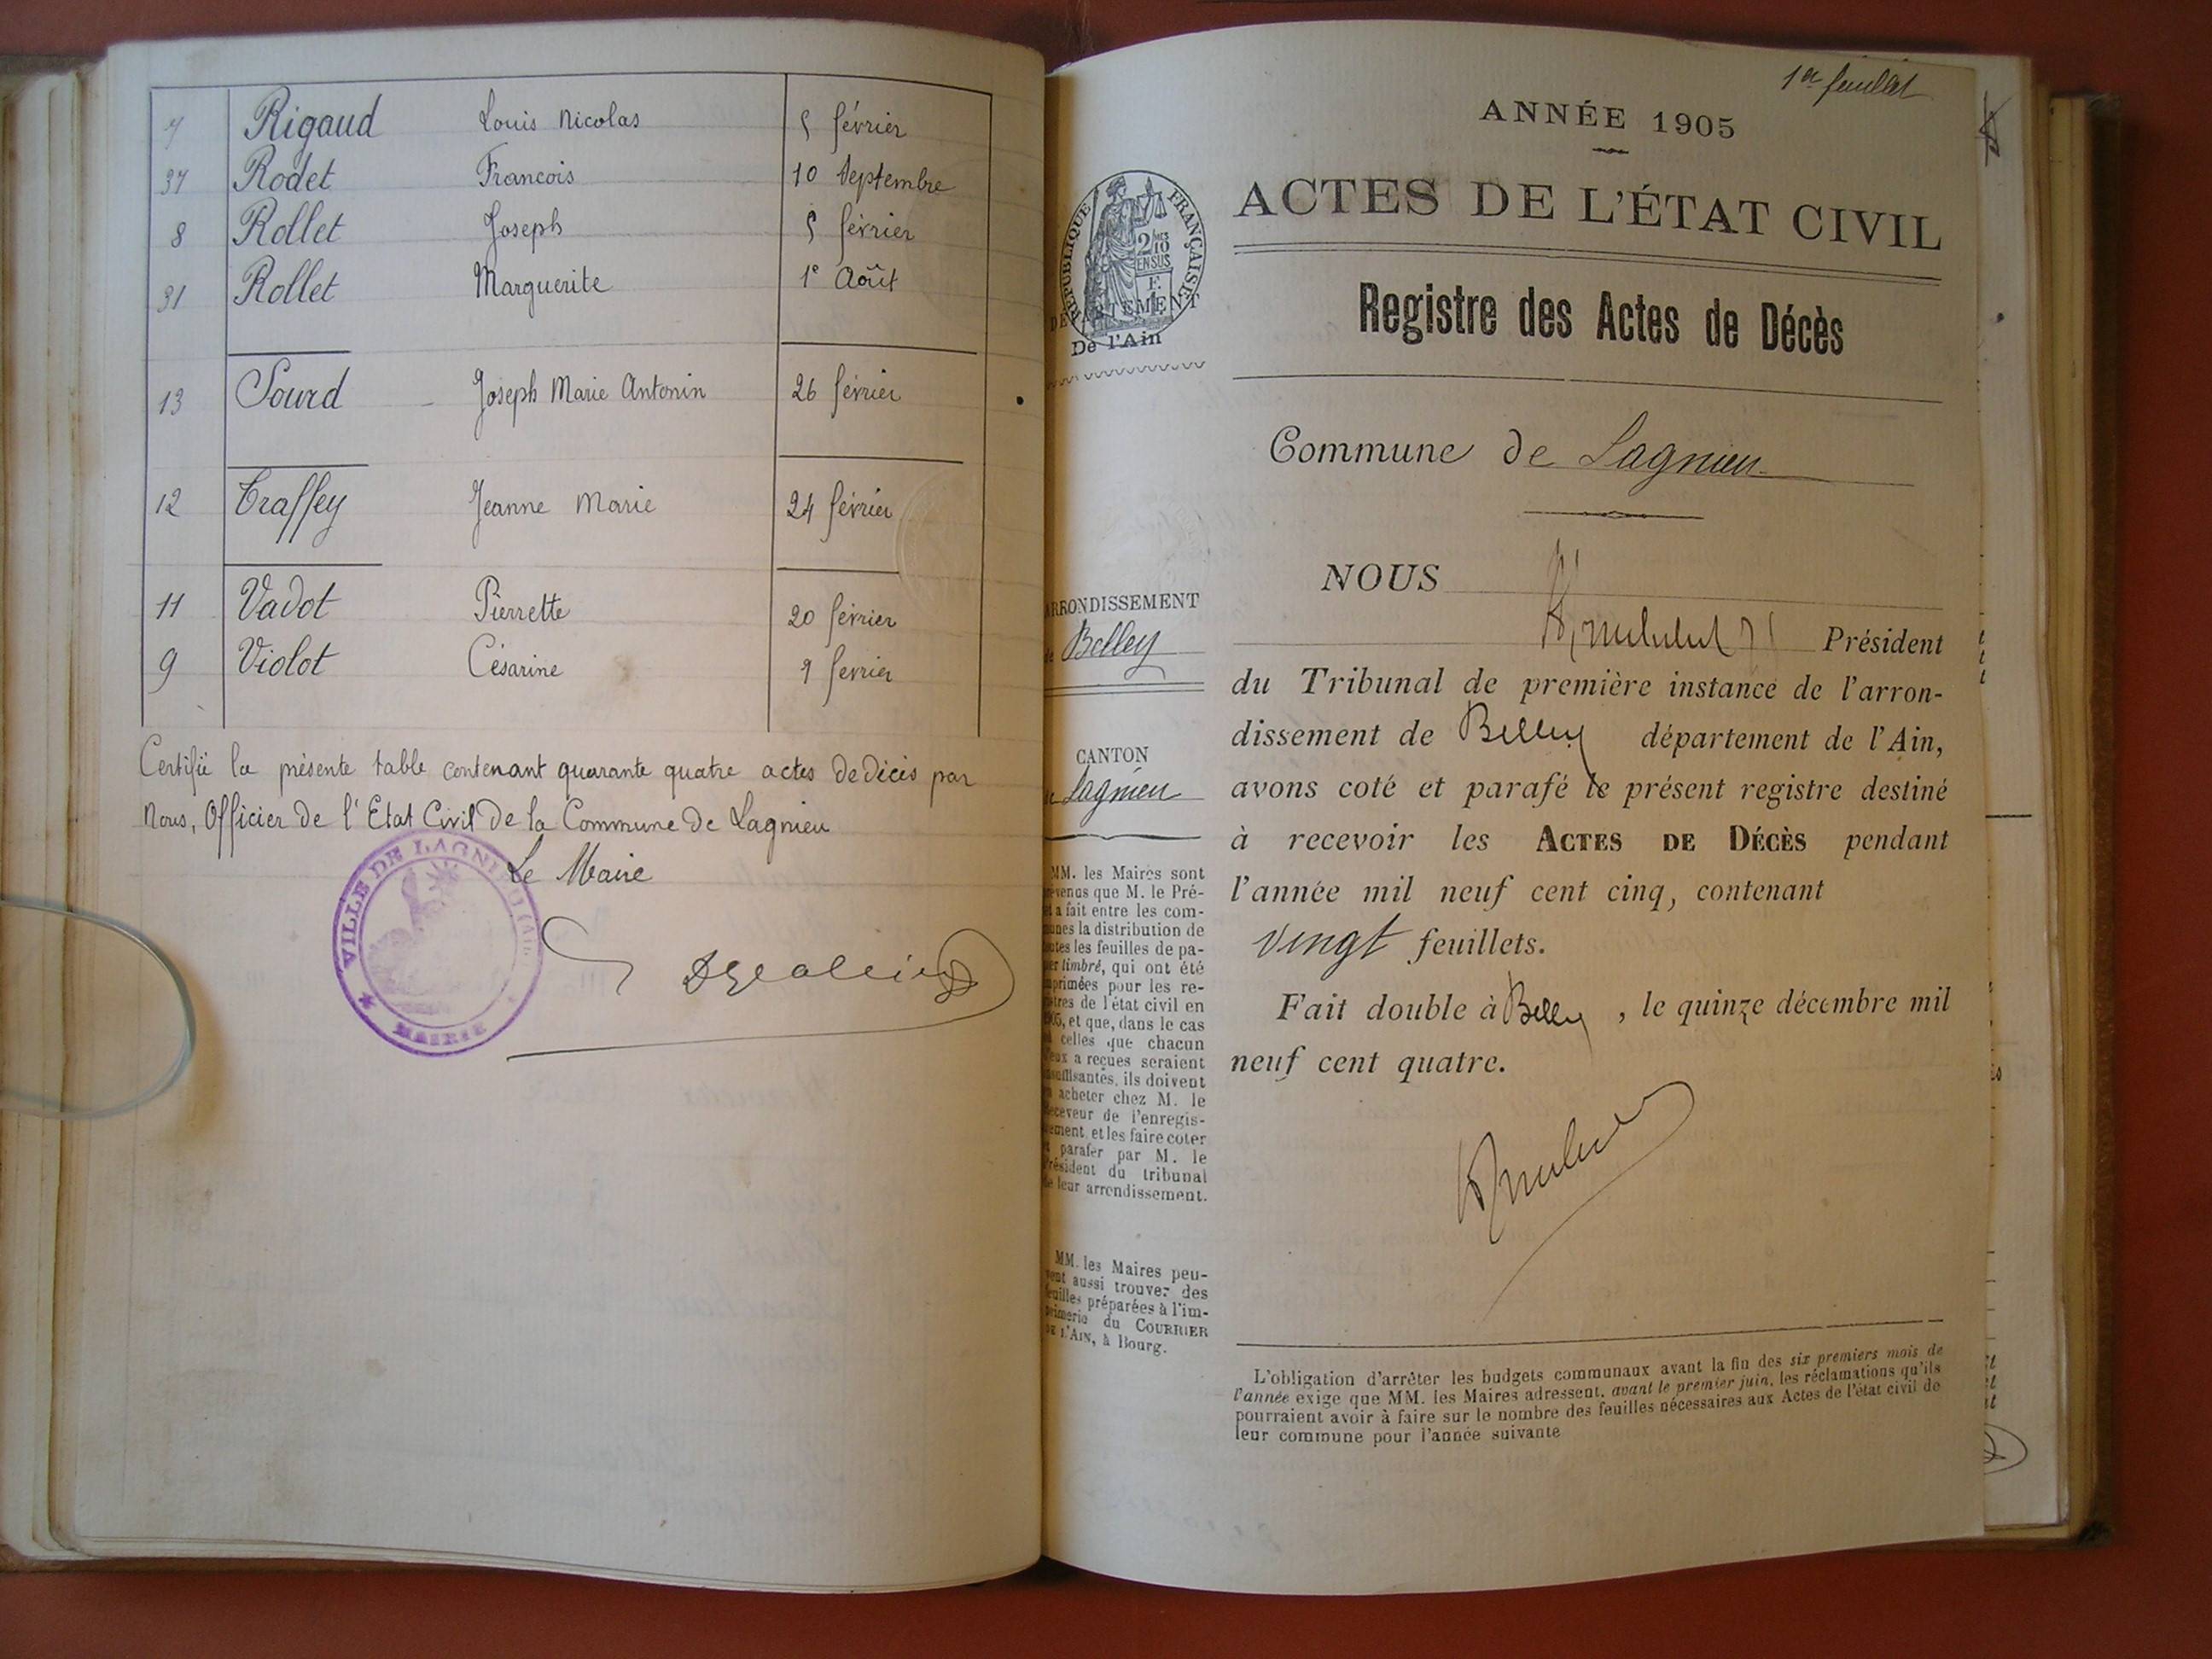 7 Rigaud Louis Nicolas 5 février
37 Rodet Francois 10 Septembre
8 Rollet Joseph 5 février
31 Rollet Marguerite 1e Août
13 Sourd - Joseph Marie Antonin 26 février
12 Traffey Jeanne Marie 24 février
11 Vadot Pierrette 20 février
9 Violot Césarine 9 fevrier
Certifié la présente table contenant quarante quatre actes de décès par
Nous, Officier de l'Etat Civil de la Commune de Lagnieu
Le Maire
VILLE DE LAGNIEU
MAIRIE
1er feuillet
ANNÉE 1905
ACTES DE L'ÉTAT CIVIL
RÉPUBLIQUE FRANÇAISE
DÉPARTEMENT
De l'Ain
Registre des Actes de Décès
Commune de Lagnieu
NOUS
Président
du Tribunal de première instance de l'arron-
dissement de Belley département de l'Ain,
avons coté et parafé le présent registre destiné
à recevoir les ACTES DE DÉCÈS pendant
l'année mil neuf cent cinq, contenant
vingt feuillets.
Fait double à Belley, le quinze décembre mil
neuf cent quatre.
ARRONDISSEMENT
de Belley
CANTON
de Lagnieu
MM. les Maires sont
prévenus que M. le Pré-
fet a fait entre les com-
munes la distribution de
toutes les feuilles de pa-
pier timbré, qui ont été
imprimées pour les re-
gistres de l'état civil en
1905, et que, dans le cas
où celles que chacun
d'eux a reçues seraient
insuffisantes, ils doivent
en acheter chez M. le
Receveur de l'enregis-
trement, et les faire coter
et parafer par M. le
Président du tribunal
de leur arrondissement.
MM. les Maires peu-
vent aussi trouver des
feuilles préparées à l'im-
primerie du COURRIER
DE L'AIN, à Bourg.
L'obligation d'arrêter les budgets communaux avant la fin des six premiers mois de
l'année exige que MM. les Maires adressent, avant le premier juin, les réclamations qu'ils
pourraient avoir à faire sur le nombre des feuilles nécessaires aux Actes de l'état civil de
leur commune pour l'année suivante